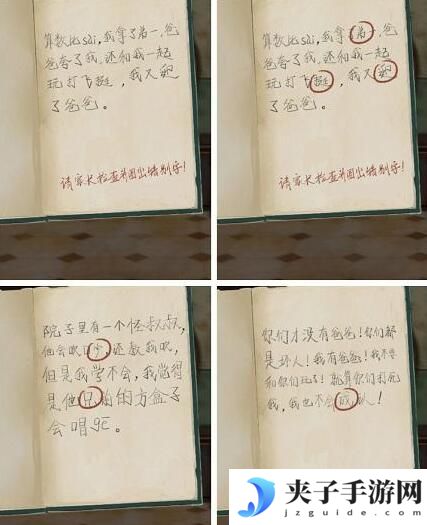 算数比sài，我拿了弟一，爸
爸夸了我，还和我一起
玩打飞挺，我又
了爸爸。
请家长检查并圈出错别字！
算数比sài，我拿了弟一，爸
爸夸了我，还和我一起
玩打飞挺，我又
了爸爸。
请家长检查并圈出错别字！
院子里有一个怪叔叔，
他会吹口，还教我吹，
但是我学不会，我觉得
是他兄前的方盒子
会唱gē。
你们才没有爸爸！你们都
是坏人！我有爸爸！我不要
和你们玩了！就算你们打死
我，我也不会成认！
夹子手游网
jzguide.com